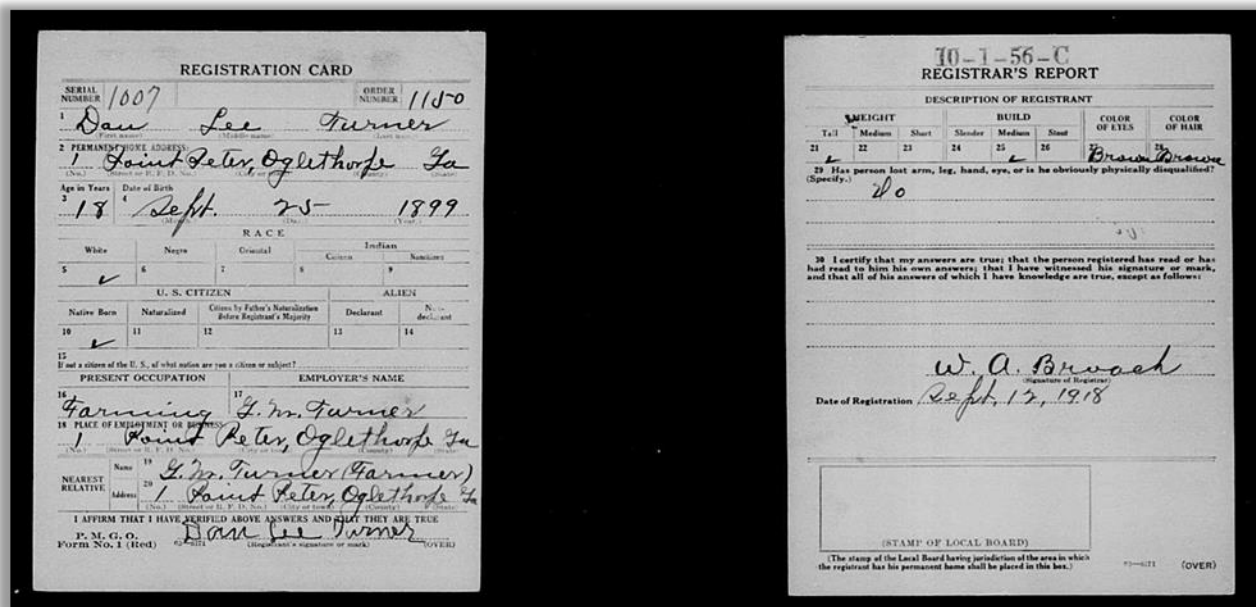 REGISTRATION CARD
SERIAL NUMBER 1007 ORDER NUMBER 1150
1 Dan Lee Turner
(First name) (Middle name) (Last name)
2 PERMANENT HOME ADDRESS:
1 Point Peter, Oglethorpe Ga
(No.) (Street or R. F. D. No.) (City or town) (County) (State)
Age in Years Date of Birth
3 18 4 Sept. 25 1899
(Month) (Day) (Year)
RACE
White Negro Oriental Indian
Citizen Noncitizen
5 ✓ 6 7 8 9
U. S. CITIZEN ALIEN
Native Born Naturalized Citizen by Father's Naturalization Before Registrant's Majority Declarant Non-declarant
10 ✓ 11 12 13 14
15
If not a citizen of the U. S., of what nation are you a citizen or subject?
PRESENT OCCUPATION EMPLOYER'S NAME
16 Farming 17 G. M. Turner
18 PLACE OF EMPLOYMENT OR BUSINESS
1 Point Peter, Oglethorpe Ga
(No.) (Street or R. F. D. No.) (City or town) (County) (State)
NEAREST RELATIVE Name 19 G. M. Turner (Farmer)
Address 20 1 Point Peter, Oglethorpe Ga
(No.) (Street or R. F. D. No.) (City or town) (County) (State)
I AFFIRM THAT I HAVE VERIFIED ABOVE ANSWERS AND THAT THEY ARE TRUE
P. M. G. O.
Form No. 1 (Red) Dan Lee Turner
(Registrant's signature or mark) (OVER)
10-1-56-C
REGISTRAR'S REPORT
DESCRIPTION OF REGISTRANT
HEIGHT BUILD COLOR OF EYES COLOR OF HAIR
Tall Medium Short Slender Medium Stout
21 ✓ 22 23 24 25 ✓ 26 27 Brown 28 Brown
29 Has person lost arm, leg, hand, eye, or is he obviously physically disqualified?
(Specify.) No
30 I certify that my answers are true; that the person registered has read or has
had read to him his own answers; that I have witnessed his signature or mark,
and that all of his answers of which I have knowledge are true, except as follows:
W. A. Brooch
(Signature of Registrar)
Date of Registration Sept, 12, 1918
(STAMP OF LOCAL BOARD)
(The stamp of the Local Board having jurisdiction of the area in which
the registrant has his permanent home shall be placed in this box.)
(OVER)